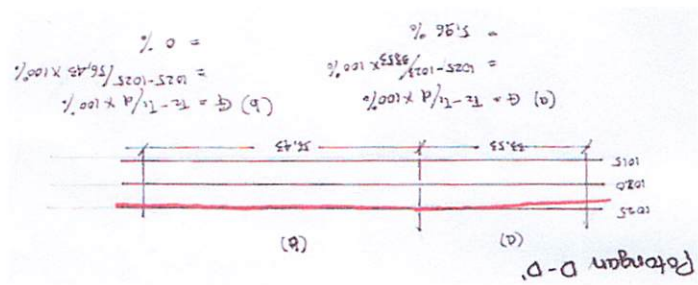 Potongan D-D'
(a) (b)
1025
1020
1015
33.53 56.43
(a) G = T2-T1/d x 100%
= 1025-1023/3353 x 100%
= 5,96 %
(b) G = T2-T1/d x 100%
= 1025-1025/56,43 x 100%
= 0 %